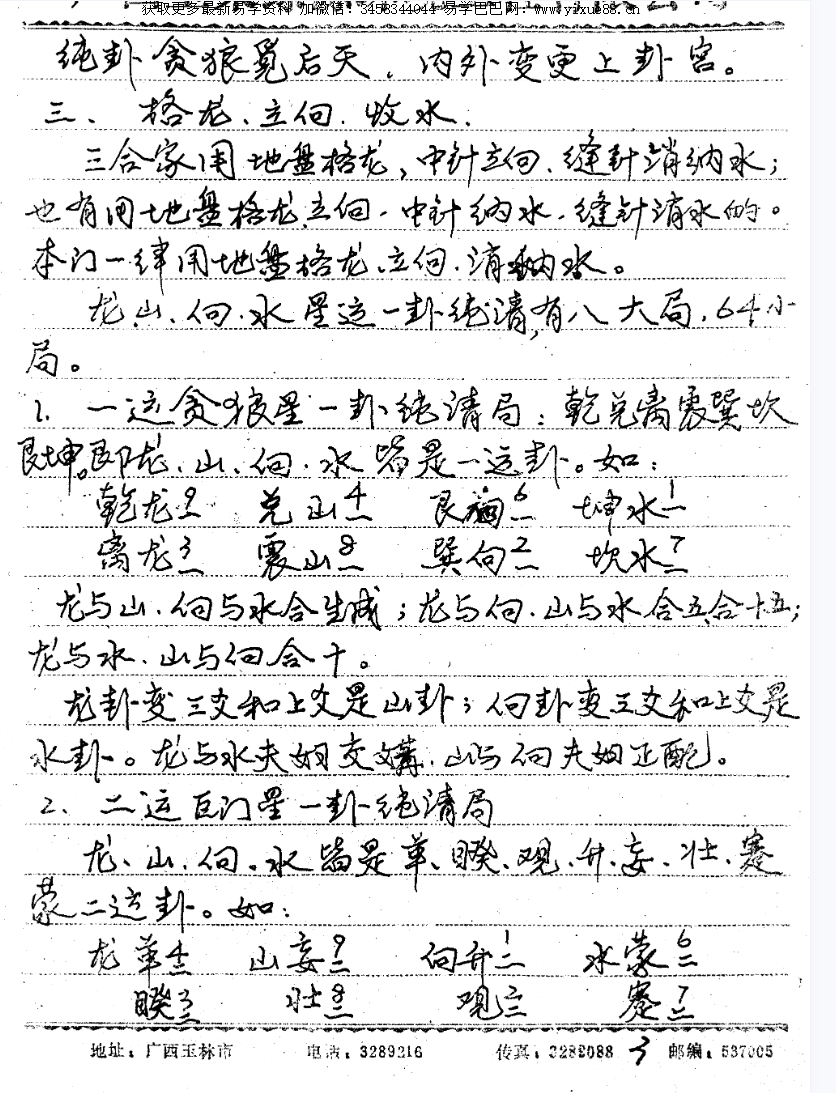 获取更多最新易学资料 加微信：3458344044 易学巴巴网：www.yixue88.cn
纯卦贪狼觅后天，内外变更上卦宫。
三、格龙、立向、收水．
三合家用地盘格龙，中针立向、缝针消纳水；
也有用地盘格龙立向，中针纳水，缝针消水的。
本门一律用地盘格龙、立向、消纳水。
龙、山、向、水星运一卦纯清，有八大局，64小
局。
1、一运贪狼星一卦纯清局：乾兑离震巽坎
艮坤。即龙、山、向、水皆是一运卦。如：
乾龙9/一 兑山4/一 艮向6/一 坤水1/一
离龙3/一 震山8/一 巽向2/一 坎水7/一
龙与山、向与水合生成；龙与向、山与水合五、合十五；
龙与水、山与向合十。
龙卦变三爻和上爻是山卦；向卦变三爻和上爻是
水卦。龙与水夫妇交媾，山与向夫妇正配。
2、二运巨门星一卦纯清局
龙、山、向、水皆是革、睽、观、升、妄、壮、蹇
蒙二运卦。如：
龙革4/二 山妄9/二 向升1/二 水蒙6/二
睽3/二 壮8/二 观2/二 蹇7/二
地址：广西玉林市 电话：3289216 传真：3282088 3 邮编：537005